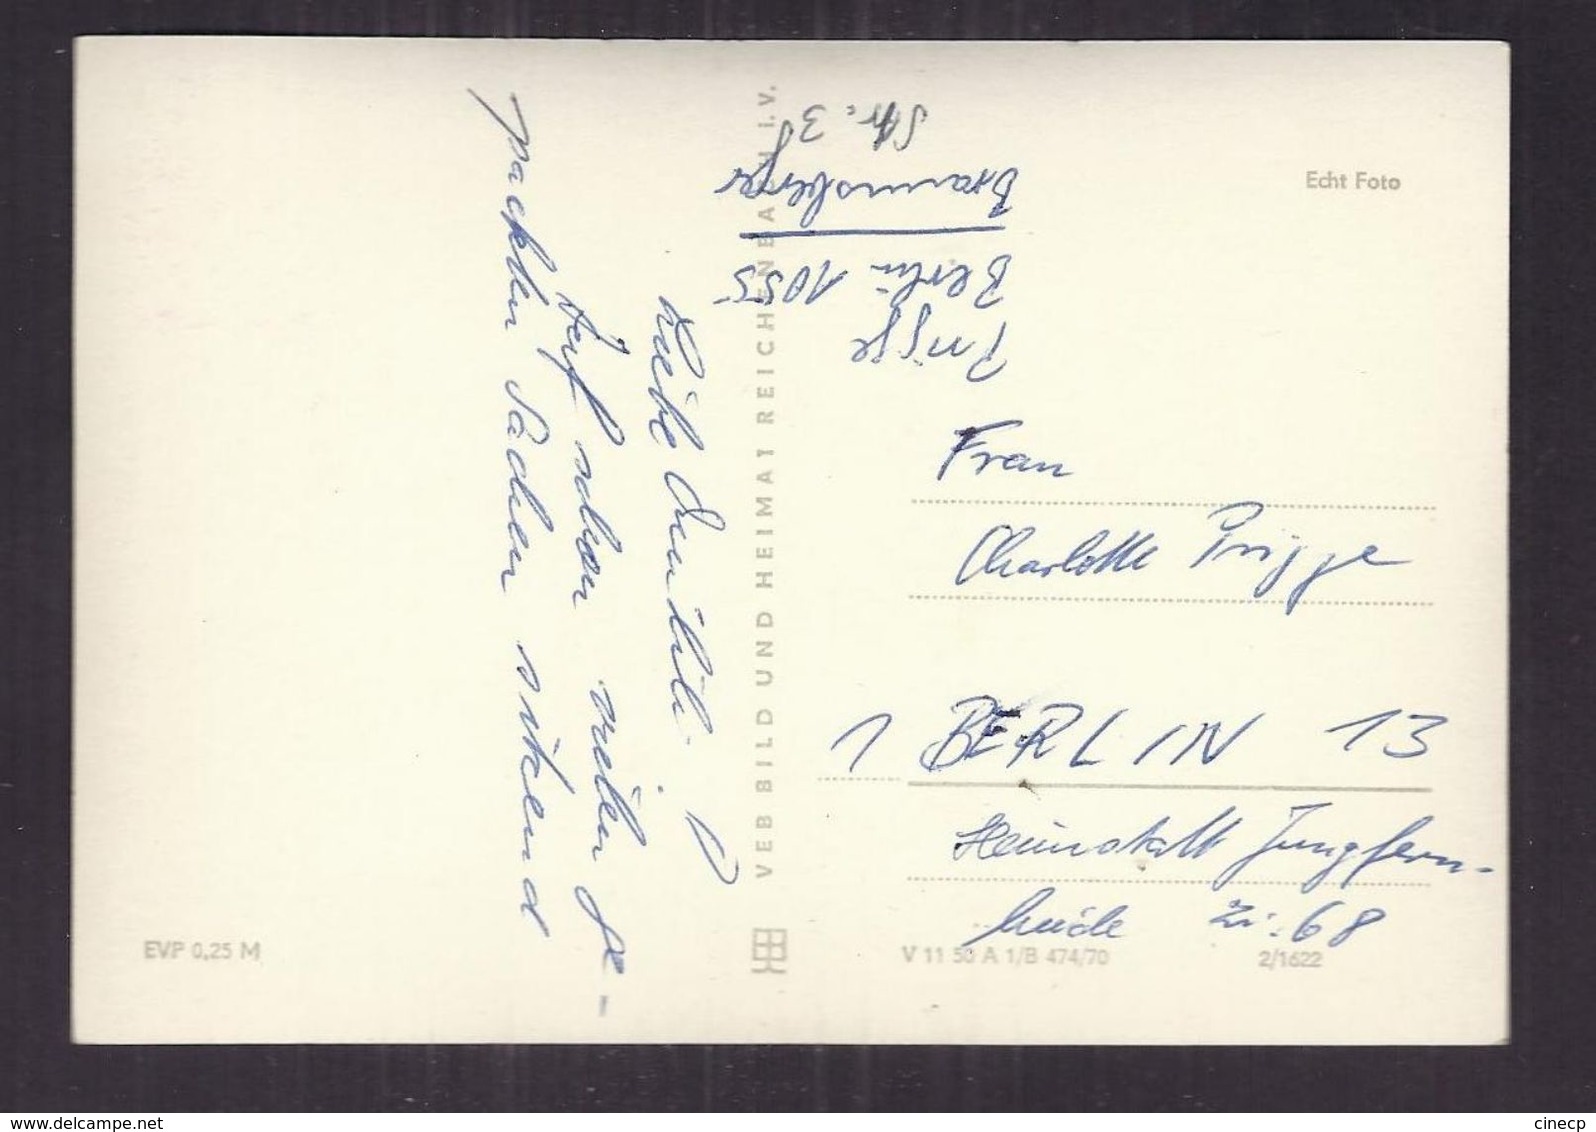 Prigge
Berlin 1055
Braunsberger
Str. 3
Echt Foto
Frau
Charlotte Prigge
1 BERLIN 13
Heimstatt Jungfern-
heide Zi. 68
Liebe
auf schon vielen ge-
packten Sachen sitzend
VEB BILD UND HEIMAT REICHENBACH I.V.
EVP 0,25 M
V 11 50 A 1/B 474/70
2/1622
delcampe.net
cinecp